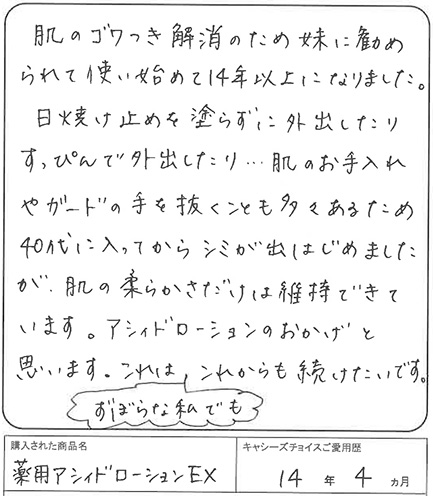 肌のゴワつき解消のため妹に勧め
られて使い始めて14年以上になりました。
日焼け止めを塗らずに外出したり
すっぴんで外出したり…肌のお手入れ
やガードの手を抜くことも多々あるため
40代に入ってからシミが出はじめました
が、肌の柔らかさだけは維持できて
います。アシィドローションのおかげと
思います。これは、これからも続けたいです。
ずぼらな私でも
購入された商品名
キャシーズチョイスご愛用歴
薬用アシィドローションEX
14年4ヵ月